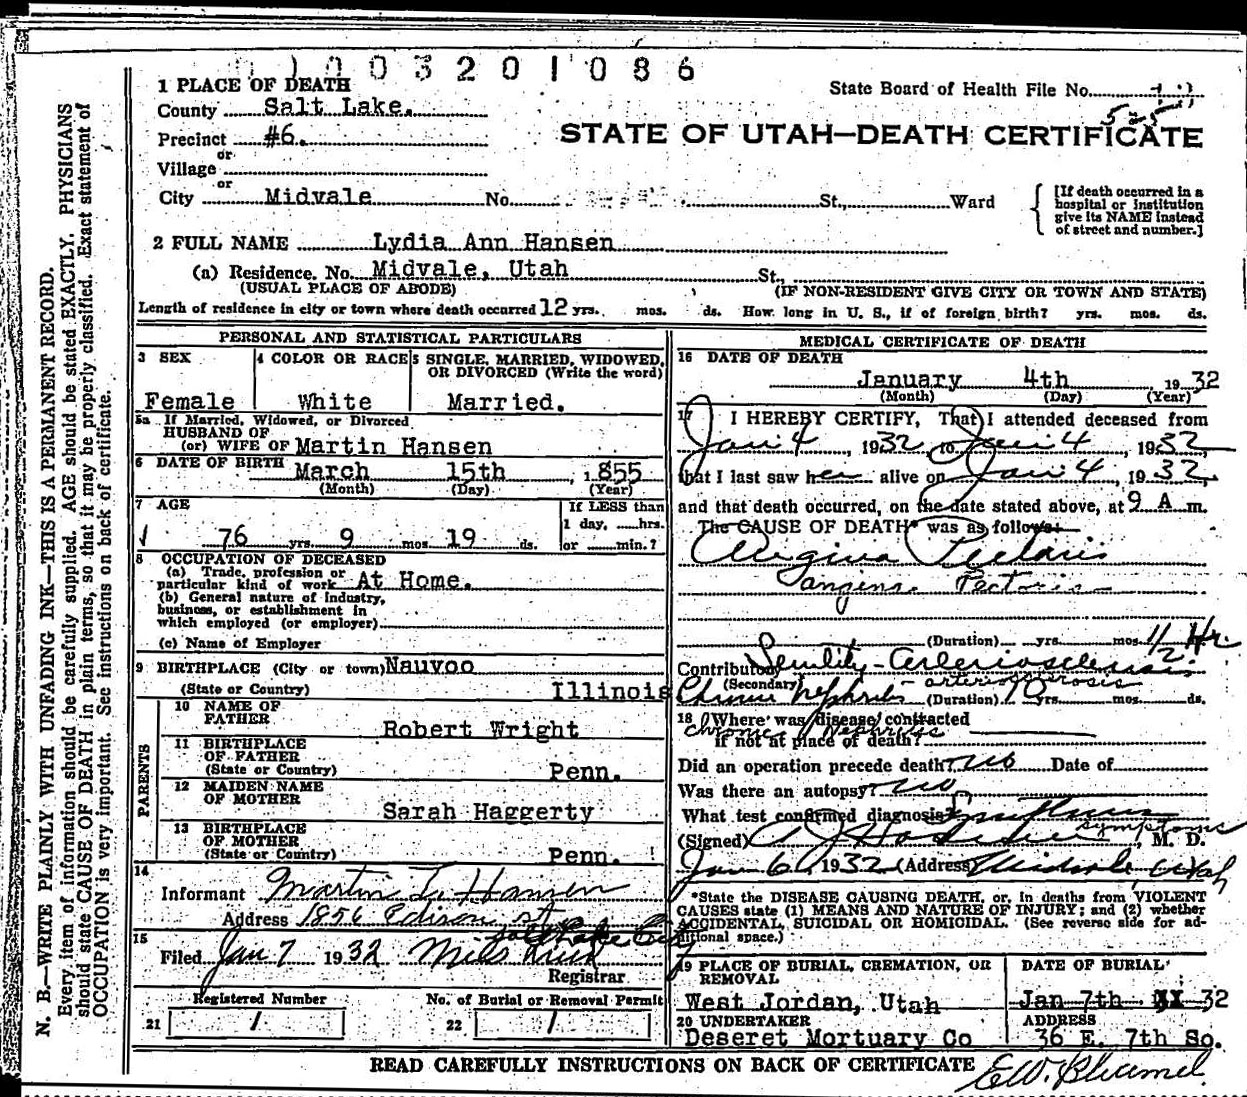 1 0 0 3 2 0 1 0 8 6
1 PLACE OF DEATH
State Board of Health File No.
County Salt Lake.
525
Precinct #6.
STATE OF UTAH—DEATH CERTIFICATE
or
Village
or
City Midvale No. St., Ward
[If death occurred in a hospital or institution give its NAME instead of street and number.]
2 FULL NAME Lydia Ann Hansen
(a) Residence. No. Midvale, Utah St.,
(USUAL PLACE OF ABODE) (IF NON-RESIDENT GIVE CITY OR TOWN AND STATE)
Length of residence in city or town where death occurred 12 yrs. mos. ds. How long in U. S., if of foreign birth? yrs. mos. ds.
PERSONAL AND STATISTICAL PARTICULARS
3 SEX
Female
4 COLOR OR RACE
White
5 SINGLE, MARRIED, WIDOWED, OR DIVORCED (Write the word)
Married.
5a If Married, Widowed, or Divorced
HUSBAND OF
(or) WIFE OF Martin Hansen
6 DATE OF BIRTH March 15th , 1855
(Month) (Day) (Year)
7 AGE
76 yrs. 9 mos. 19 ds.
If LESS than
1 day, hrs.
or min.?
8 OCCUPATION OF DECEASED
(a) Trade, profession or
particular kind of work At Home.
(b) General nature of industry,
business, or establishment in
which employed (or employer)
(c) Name of Employer
9 BIRTHPLACE (City or town) Nauvoo
(State or Country) Illinois
PARENTS
10 NAME OF
FATHER Robert Wright
11 BIRTHPLACE
OF FATHER
(State or Country) Penn.
12 MAIDEN NAME
OF MOTHER Sarah Haggerty
13 BIRTHPLACE
OF MOTHER
(State or Country) Penn.
14
Informant Martin L. Hansen
Address 1856 Edison St
Salt Lake City
15
Filed Jan 7 1932
Registrar
Registered Number
21 1
No. of Burial or Removal Permit
22 1
MEDICAL CERTIFICATE OF DEATH
16 DATE OF DEATH
January 4th , 1932
(Month) (Day) (Year)
17 I HEREBY CERTIFY, That I attended deceased from
Jan 4, 1932 to Jan 4, 1932,
that I last saw her alive on Jan 4, 1932,
and that death occurred, on the date stated above, at 9 A m.
The CAUSE OF DEATH* was as follows:
Angina Pectoris
angina Pectoris
(Duration) yrs. mos. 1/2 Hr.
Contributory Senility - arteriosclerosis
(Secondary) arteriosclerosis
Chronic Nephritis (Duration) 10 yrs. mos. ds.
18 Where was disease contracted
Chronic Nephritis
if not at place of death?
Did an operation precede death? no Date of
Was there an autopsy? no
What test confirmed diagnosis? symptoms
symptoms
(Signed) , M. D.
Jan 6, 1932 (Address) Midvale, Utah
*State the DISEASE CAUSING DEATH, or, in deaths from VIOLENT
CAUSES state (1) MEANS AND NATURE OF INJURY; and (2) whether
ACCIDENTAL, SUICIDAL OR HOMICIDAL. (See reverse side for ad-
ditional space.)
19 PLACE OF BURIAL, CREMATION, OR
REMOVAL
West Jordan, Utah
DATE OF BURIAL
Jan 7th 32
20 UNDERTAKER
Deseret Mortuary Co
ADDRESS
36 E. 7th So.
READ CAREFULLY INSTRUCTIONS ON BACK OF CERTIFICATE
N. B.—WRITE PLAINLY WITH UNFADING INK—THIS IS A PERMANENT RECORD.
Every item of information should be carefully supplied. AGE should be stated EXACTLY. PHYSICIANS
should state CAUSE OF DEATH in plain terms, so that it may be properly classified. Exact statement of
OCCUPATION is very important. See instructions on back of certificate.